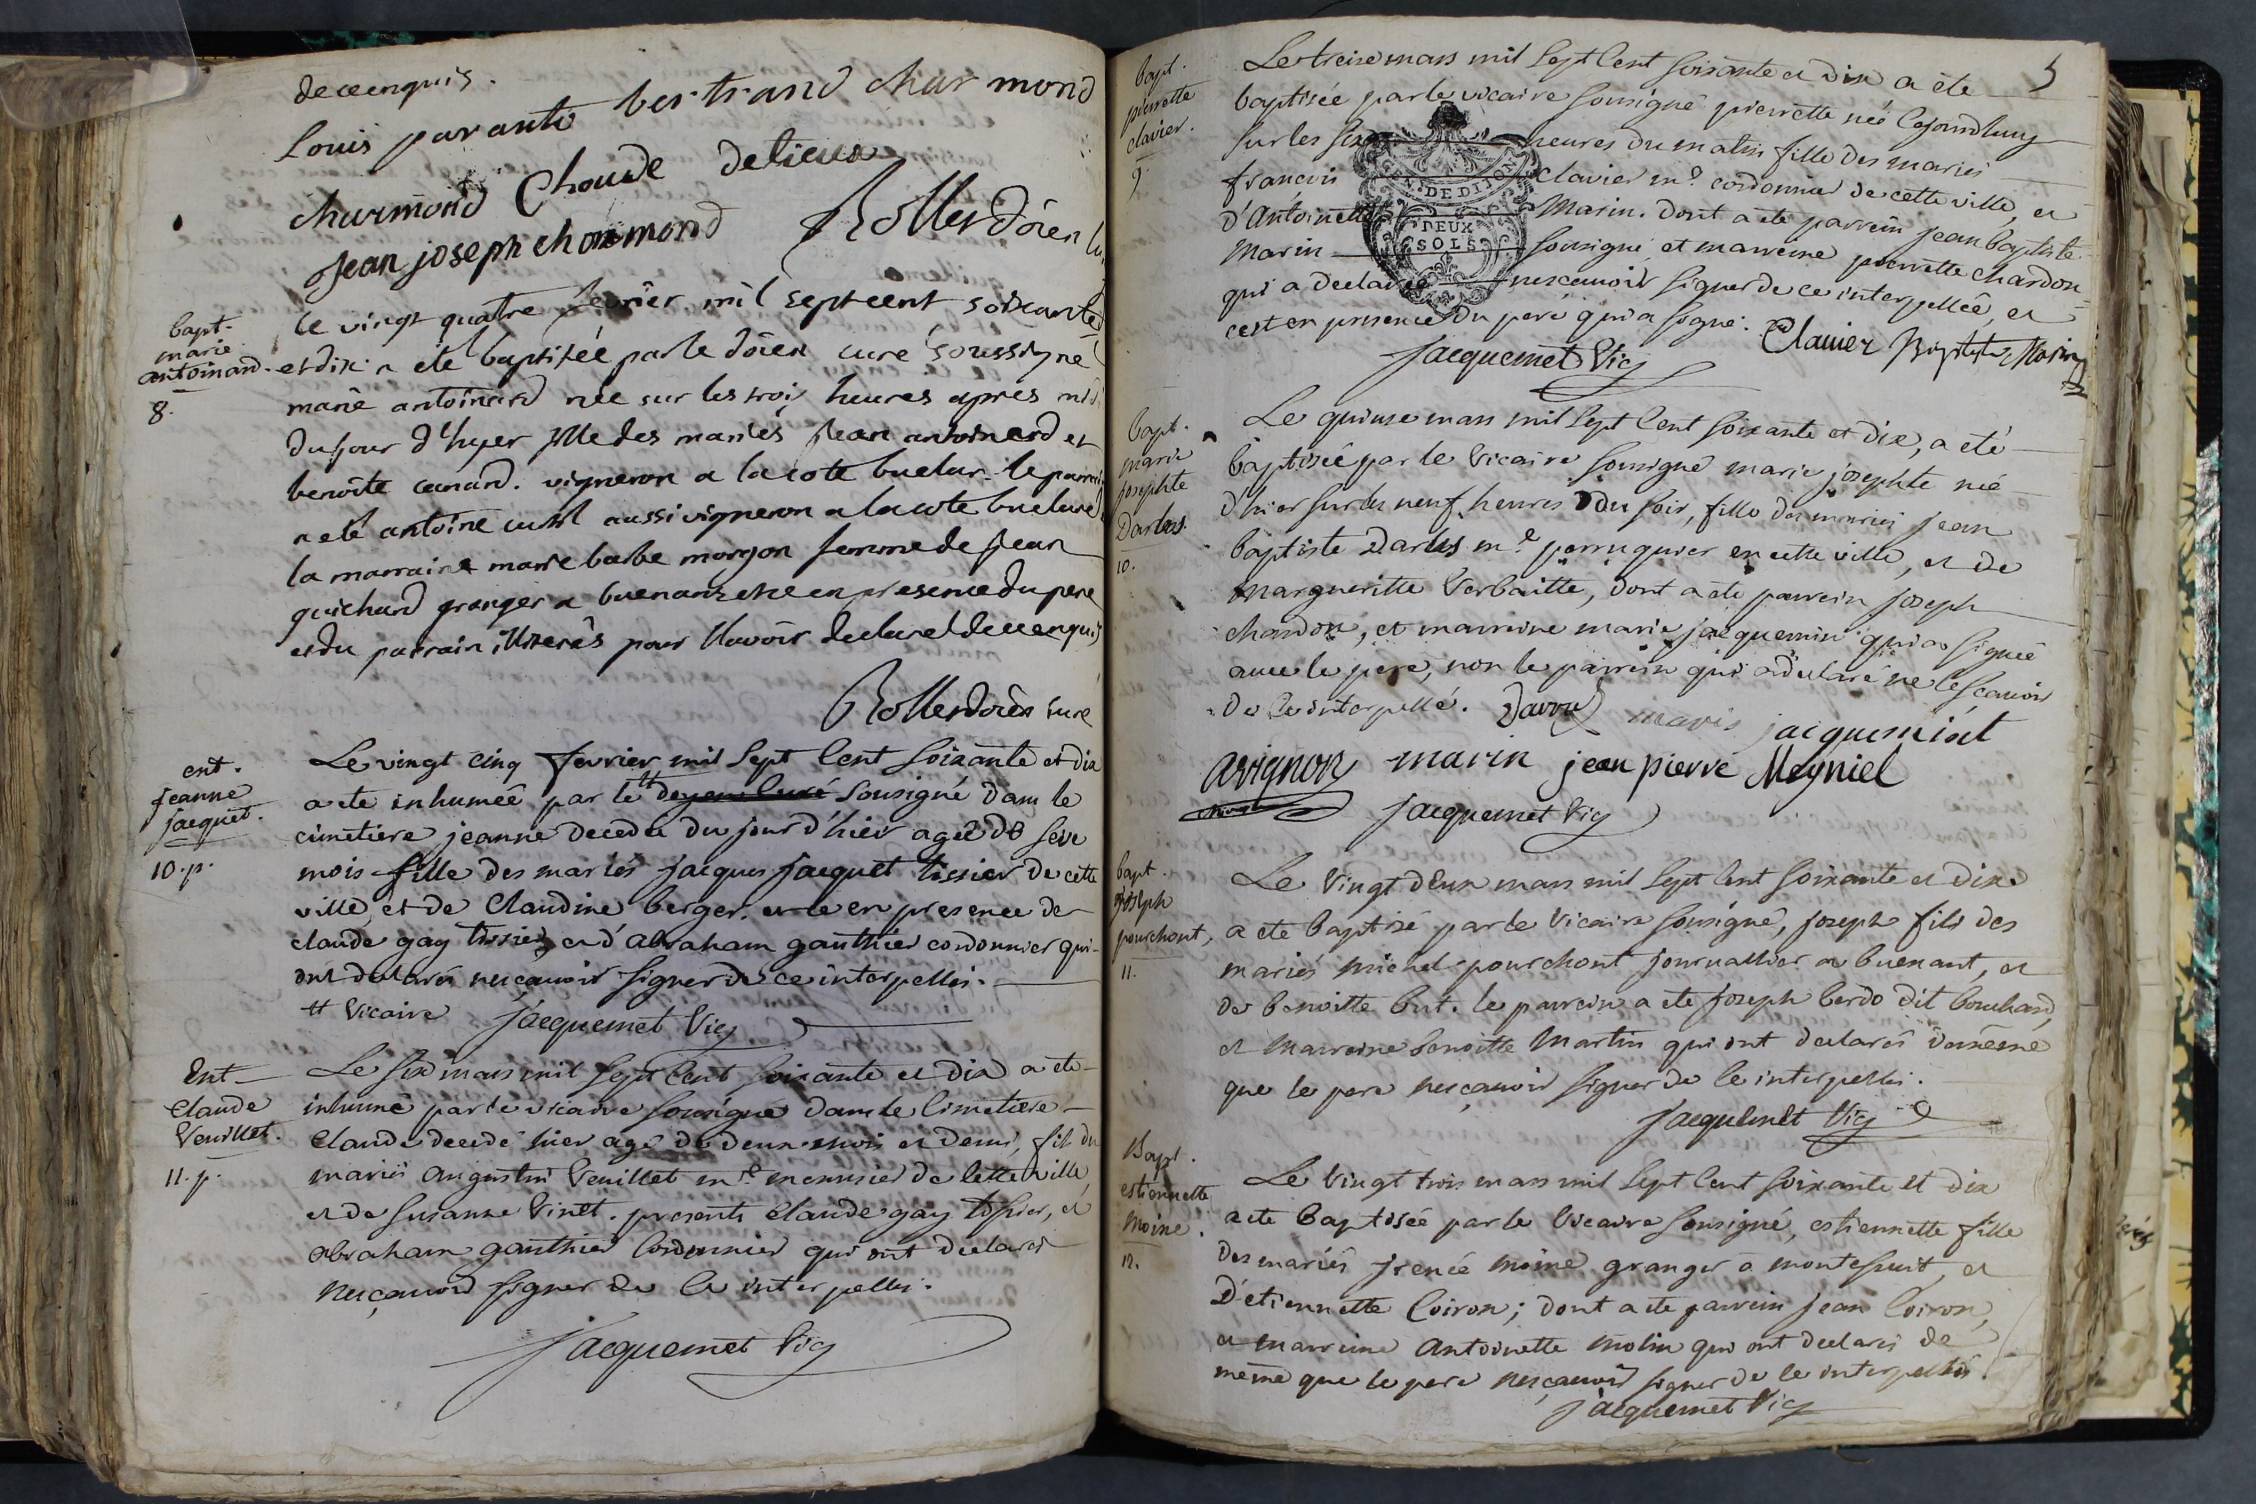 de ce enquis.
Louis parante bertrand charmond
charmond Choude delieux
Jean joseph charmond Rollendoien
bapt.
marie
antoinard.
8.
Le vingt quatre fevrier mil sept cent soixante
et dix a été baptisée par le doien curé soussigné
marie antoinard née sur les trois heures apres midi
du jour d'hyer fille des mariés jean antoinard et
benoite canard. vigneron a la cote buelar. le parrain
a eté antoine aussi vigneron a la cote
la marraine marie barbe morgon femme de jean
guichard granger a buenant et ce en presence du pere
et du parrain illiterés pour l'avoir declaré de ce enquis
Rollendoien curé
ent.
jeanne
jacquet.
10. p.
Le vingt cinq fevrier mil sept cent soixante et dix
a ete inhumée par le # doyen curé sousigné dans le
cimetiere jeanne decedée du jour d'hier agée de seize
mois fille des mariés jacques jacquet tissier de cette
ville, et de Claudine berger. et ce en presence de
claude gay tissier, et d'abraham gauthier cordonnier qui
ont declarés nesçavoir signer de ce interpellés.
# Vicaire Jacquemet Vic
Ent
Claude
Veuillet.
11. p.
Le six mars mil sept cent soixante et dix a ete
inhumé par le vicaire sousigné dans le cimetiere
Claude decedé hier, agé de deux mois et demi, fils du
mariés augustin Veuillet me menusier de cette ville
et de susanne Vinet. presents claude gay tissier, et
abraham gauthier cordonnier qui ont declarés
nesçavoir signer de ce interpellés.
Jacquemet Vic
5
bapt.
pierrette
clavier.
9.
Le treise mars mil sept cent soixante et dix a ete
baptisée par le vicaire sousigné pierrette né cejourdhuy
sur les six heures du matin fille des mariés
francois clavier me cordonnier de cette ville, et
d'Antoinette Marin. dont a ete parrein jean baptiste
Marin sousigné, et marreine pierrette chardon
qui a declarée nescavoir signer de ce interpellée, et
cest en presence du pere qui a signé. Clavier Baptiste Marin
Jacquemet Vic
GEN. DE DIJON
DEUX
SOLS
bapt.
marie
josephte
Darles.
10.
Le quinse mars mil sept cent soixante et dix, a eté
baptisée par le vicaire sousigné marie josephte né
d'hier sur les neuf heures du soir, fille des mariés jean
baptiste Darles me perruquier en cette ville, et de
Margueritte Verbaitte, dont a ete parrein joseph
chardon, et marreine marie jacquemin qui a signée
avec le pere, non le parrein qui a declaré ne le sçavoir
de ce interpellé. marie jacquemint
avignon marin jean pierre Meyniel
Jacquemet Vic
bapt.
joseph
pourchont,
11.
Le Vingt deux mars mil sept cent soixante et dix
a ete baptisé par le vicaire sousigné, joseph fils des
mariés michel pourchont journallier a buenant, et
de benoitte but. le parrein a ete joseph berdo dit bouchard,
et marreine benoitte Martin qui ont declarés de même
que le pere nesçavoir signer de ce interpellés.
Jacquemet Vic
Bapt.
estiennette
Moine.
12.
Le vingt trois mars mil sept cent soixante et dix
a ete baptisée par le vicaire sousigné, estiennette fille
des mariés irenée moine granger a montefuit, et
D'étiennette Coiron; dont a ete parrein jean Coiron,
et marreine Antoinette molin qui ont declarés de
même que le pere nesçavoir signer de ce interpellés.
Jacquemet Vic